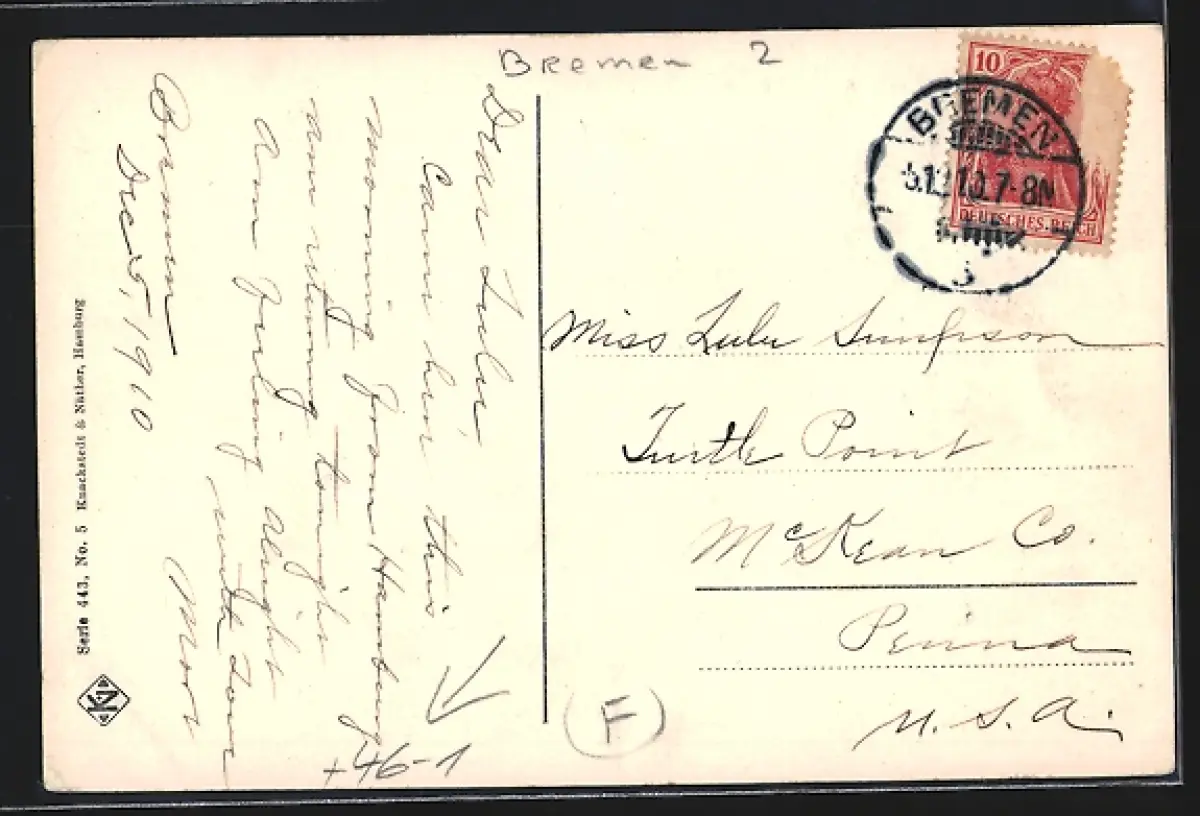 Bremen 2
10
BREMEN
5.12.10.7-8N
DEUTSCHES REICH
3
Bremen
Dec 5, 1910
Dear Lulu,
Came here this
morning from Hamburg
am returning tonight
Am feeling alright
with love
Moor
+46-1
F
Miss Lulu Simpson
Turtle Point
McKean Co.
Penna
U.S.A.
Serie 443, No. 5 Knackstedt & Näther, Hamburg
KN